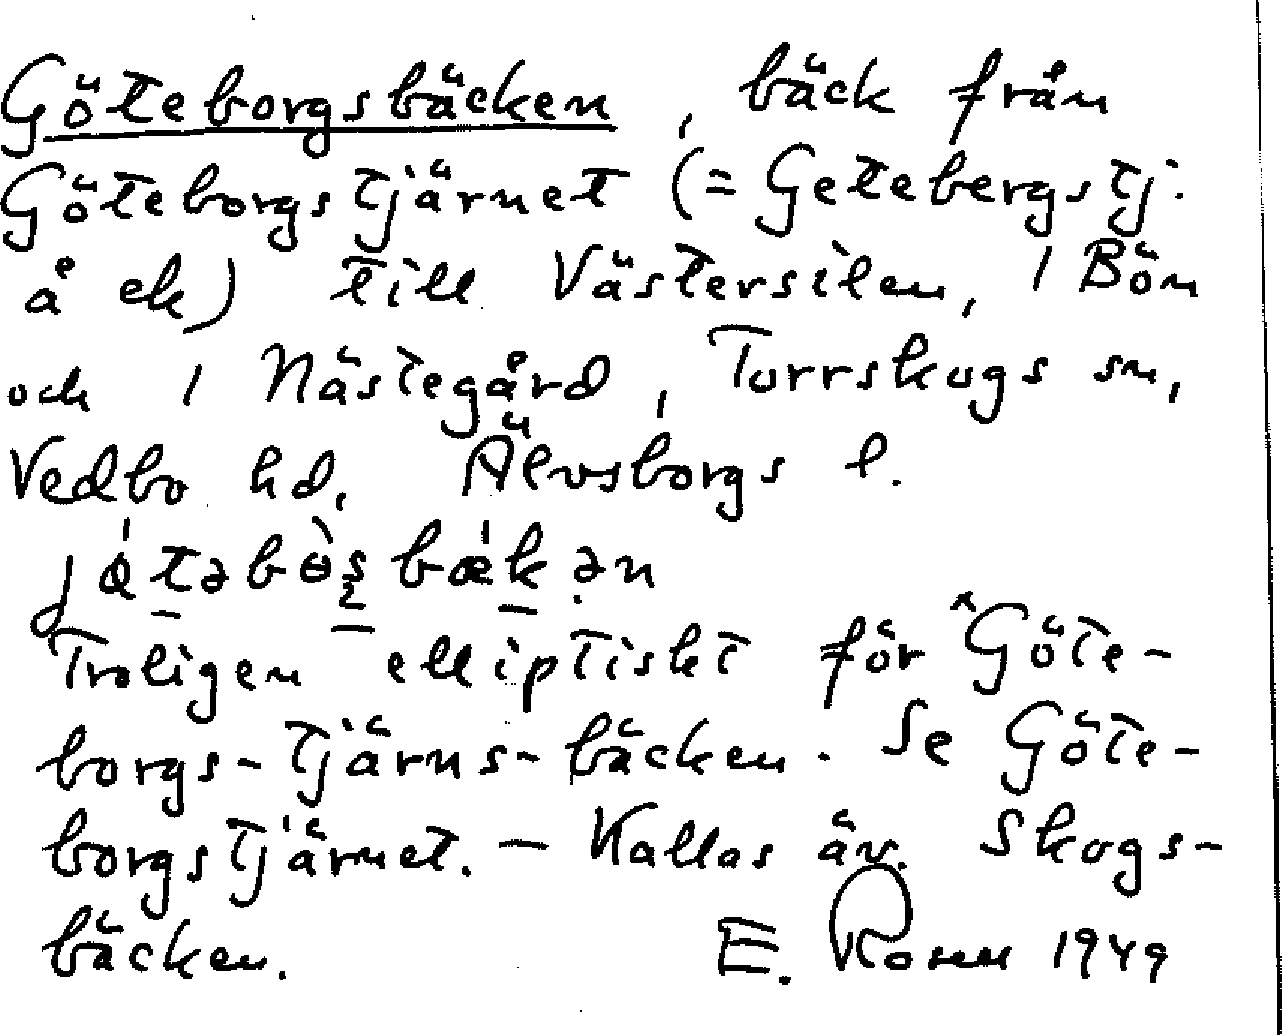 Göteborgsbäcken, bäck från
Göteborgstjärnet (= Getebergstj.
å ek) till Västersilen, i Bön
och i Nästegård, Torrskogs sn,
Vedbo hd, Älvsborgs l.
Troligen elliptiskt för *Göte-
borgs-tjärns-bäcken. Se Göte-
borgstjärnet. – Kallas äv. Skogs-
bäcken. E. 1949